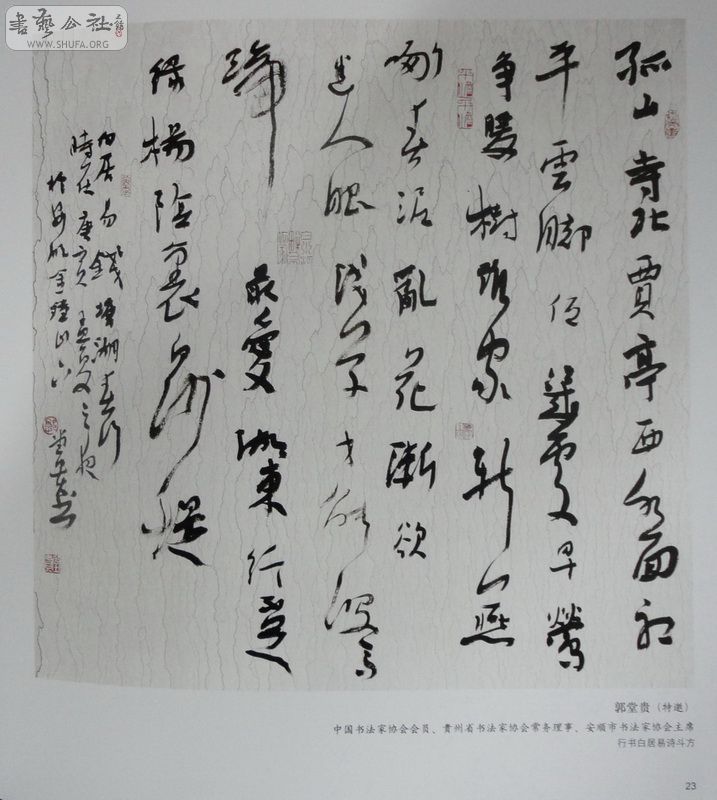 書藝公社
WWW.SHUFA.ORG
孤山寺北賈亭西水面初
平雲脚低幾處早鶯
争暖樹誰家新燕
啄春泥亂花漸欲
迷人眼淺草才能没馬
蹄最愛湖東行不足
緑楊陰裏白沙堤
白居易錢塘湖春行
時在庚寅孟夏之夜
於安順金鐘山下堂貴書
郭堂贵（特邀）
中国书法家协会会员、贵州省书法家协会常务理事、安顺市书法家协会主席
行书白居易诗斗方
23